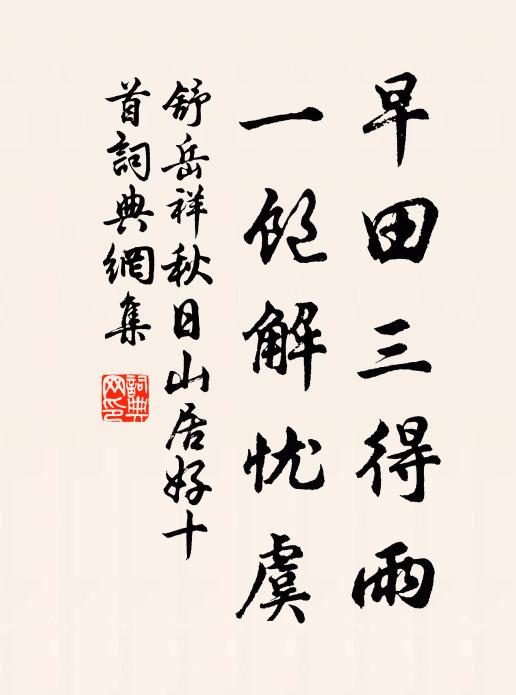 早田三得雨
一飽解忧虞
舒岳祥秋日山居好十
首詞典網集
詞典
网印